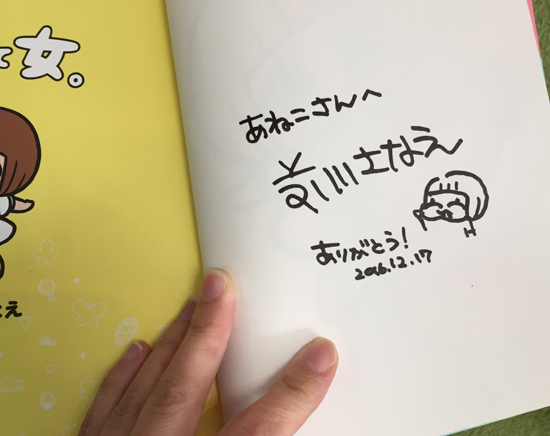 女。
え
あねこさんへ
川さなえ
ありがとう!
2016.12.17